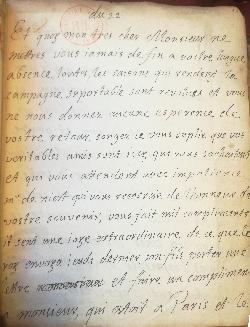 du 22
quoy mon tres cher Monsieur ne
mettres vous jamais de fin a vostre longue
absence, toutes les raisons qui rendent la
campagne suportable sont et vous
ne nous donnez aucune esperence de
vostre retour, songez ie vous suplie que vos
veritables amis sont icy, que vous souhaittent
et qui vous attendent avec impatience
mr de niert qui vous remercie de l'honneur de
vostre souvenir, vous fait mil compliments,
il sent une ioye extraordinaire, de ce que le
roy envoya ieudi dernier son fils porter une
lettre et faire un compliment
a monsieur, qui estoit a Paris et le